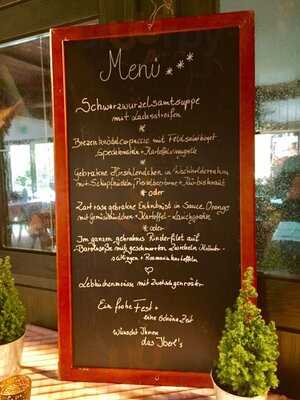 Menü ***
Schwarzwurzelsamtsuppe
mit Lachsstreifen
*
Brezenknödelcarpaccio mit Feldsalatbuget
Speckbrösteln + Kartoffelvinaigrette
*
Gebratene Hirschlendchen in Wacholderrahm
mit Schupfnudeln, Preiselbeerbirne + Kürbiskraut
* oder
Zart rosa gebratene Entenbrust in Sauce Orange
mit Gemüsebündchen + Kartoffel-Lauchgratin
* oder
Im ganzen gebratenes Rinderfilet auf
Barolosoße mit geschmorten Zwiebeln
+ Rosmarinkartoffeln
♡
Lebkuchenmousse mit Zwetschgenröster
Ein frohe Fest +
eine schöne Zeit
wünscht Ihnen
das